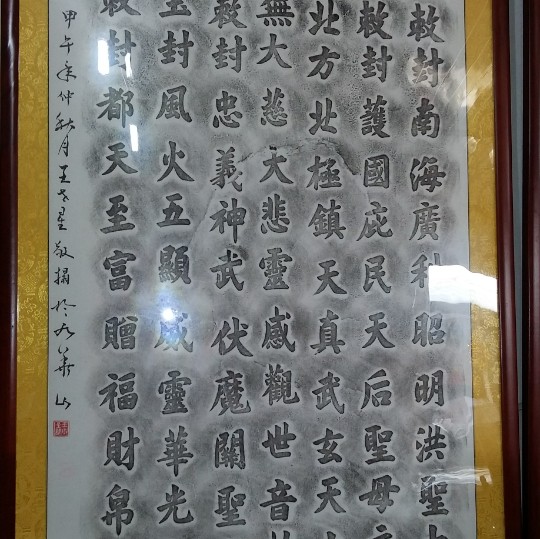 敕封南海廣利昭明洪聖
敕封護國庇民天后聖母
北方北極鎮天真武玄天
無大慈大悲靈感觀世音
敕封忠義神武伏魔關聖
玉封風火五顯威靈華光
敕封都天至富贈福財帛
甲午年仲秋月王戈星敬搨於九華山